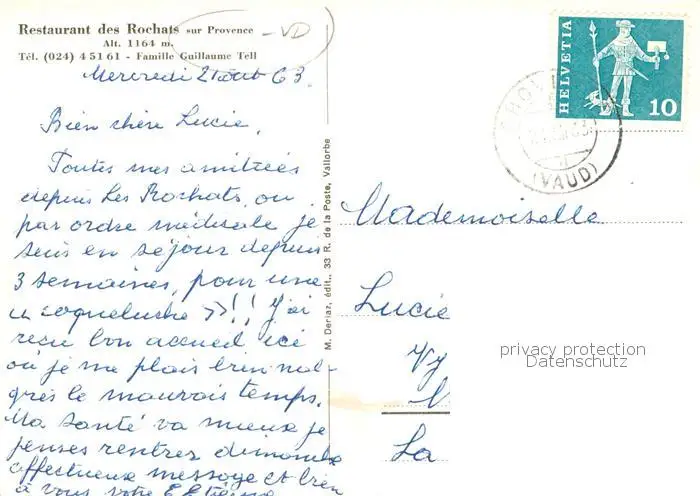 Restaurant des Rochats sur Provence - VD
Alt. 1164 m.
Tél. (024) 4 51 61 - Famille Guillaume Tell
Mercredi 21 août 63.
Bien chère Lucie,
Toutes mes amitiées
depuis Les Rochats, où
par ordre médicale je
suis en séjour depuis
3 semaines, pour une
« coqueluche »!! J'ai
reçu bon accueil ici
où je me plais bien mal-
grès le mauvais temps.
Ma santé va mieux je
penses rentrer dimanche
affectueux message et bien
à vous votre
M. Deriaz, édit., 33 R. de la Poste, Vallorbe
HELVETIA
10
(VAUD)
Mademoiselle
Lucie
La
privacy protection
Datenschutz